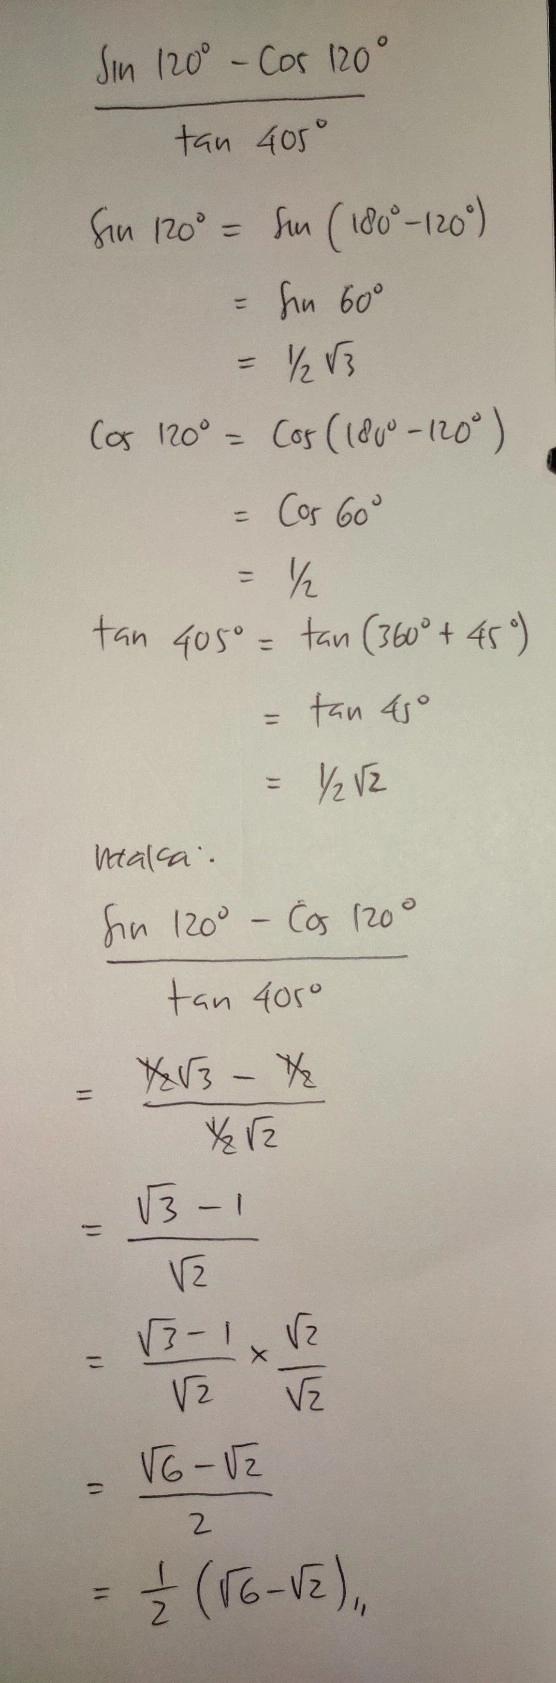 Sin 120° - Cos 120°
tan 405°
Sin 120° = Sin (180° - 120°)
= Sin 60°
= 1/2 √3
Cos 120° = Cos (180° - 120°)
= Cos 60°
= 1/2
tan 405° = tan (360° + 45°)
= tan 45°
= 1/2 √2
Maka :
Sin 120° - Cos 120°
tan 405°
= 1/2 √3 - 1/2
1/2 √2
= √3 - 1
√2
= √3 - 1 × √2
√2 √2
= √6 - √2
2
= 1/2 (√6 - √2) //